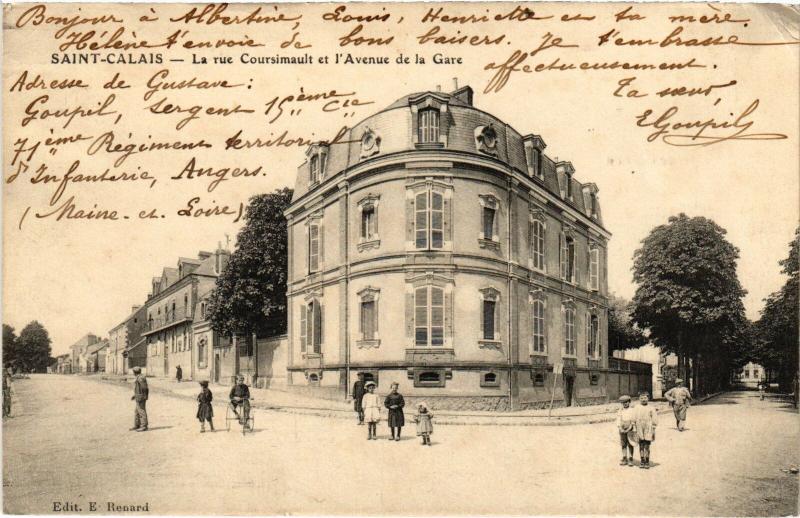 Bonjour à Albertine, Louis, Henriette et ta mère.
Hélène t'envoie de bons baisers. Je t'embrasse
affectueusement.
SAINT-CALAIS — La rue Coursimault et l'Avenue de la Gare
Ta sœur,
EGoupil
Adresse de Gustave :
Goupil, sergent 15ème Cie
71ème Régiment territorial
d'Infanterie, Angers.
(Maine-et-Loire)
Edit. E. Renard